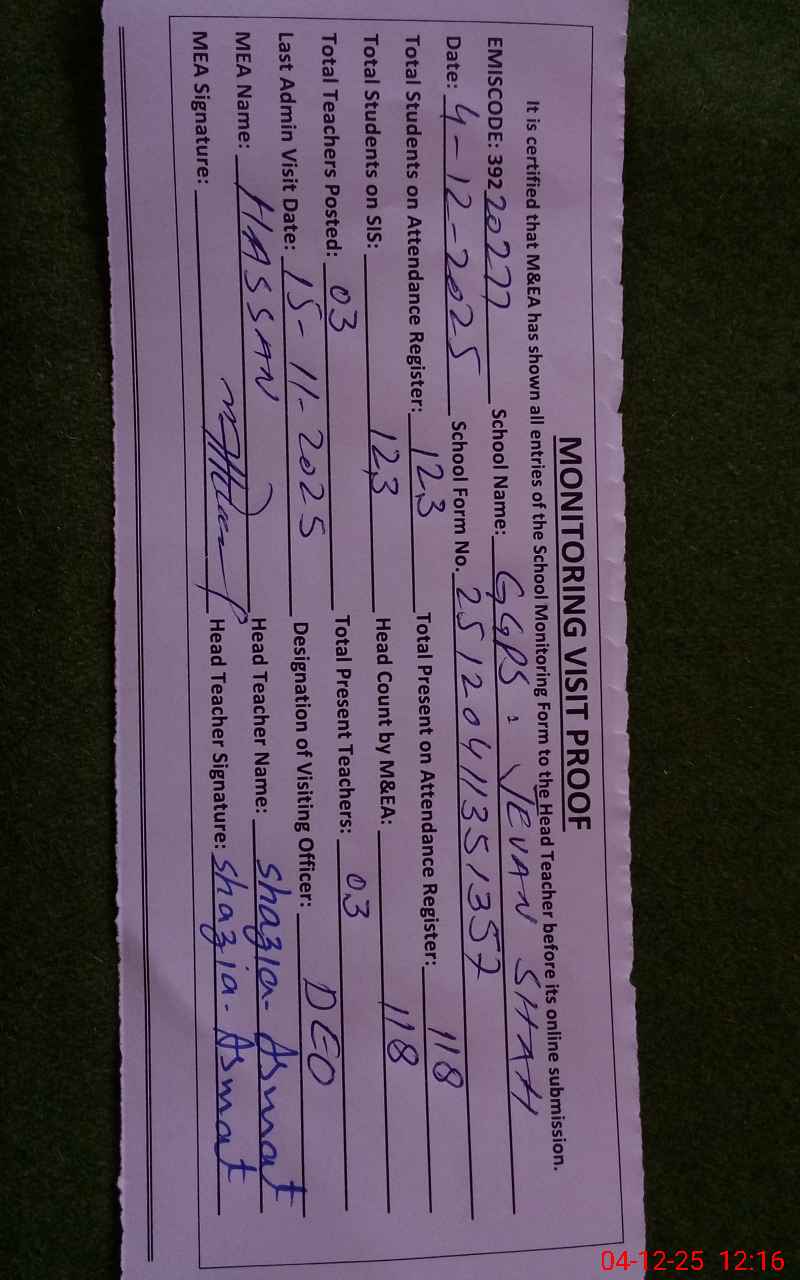 MONITORING VISIT PROOF
It is certified that M&EA has shown all entries of the School Monitoring Form to the Head Teacher before its online submission.
EMISCODE: 39220277 School Name: GGPS. JEVAN SHAH
Date: 4-12-2025 School Form No. 25120411351357
Total Students on Attendance Register: 123 Total Present on Attendance Register: 118
Total Students on SIS: 123 Head Count by M&EA: 118
Total Teachers Posted: 03 Total Present Teachers: 03
Last Admin Visit Date: 15-11-2025 Designation of Visiting Officer: DEO
MEA Name: HASSAN Head Teacher Name: shazia-Asmat
MEA Signature: Head Teacher Signature: shazia-Asmat
04-12-25 12:16